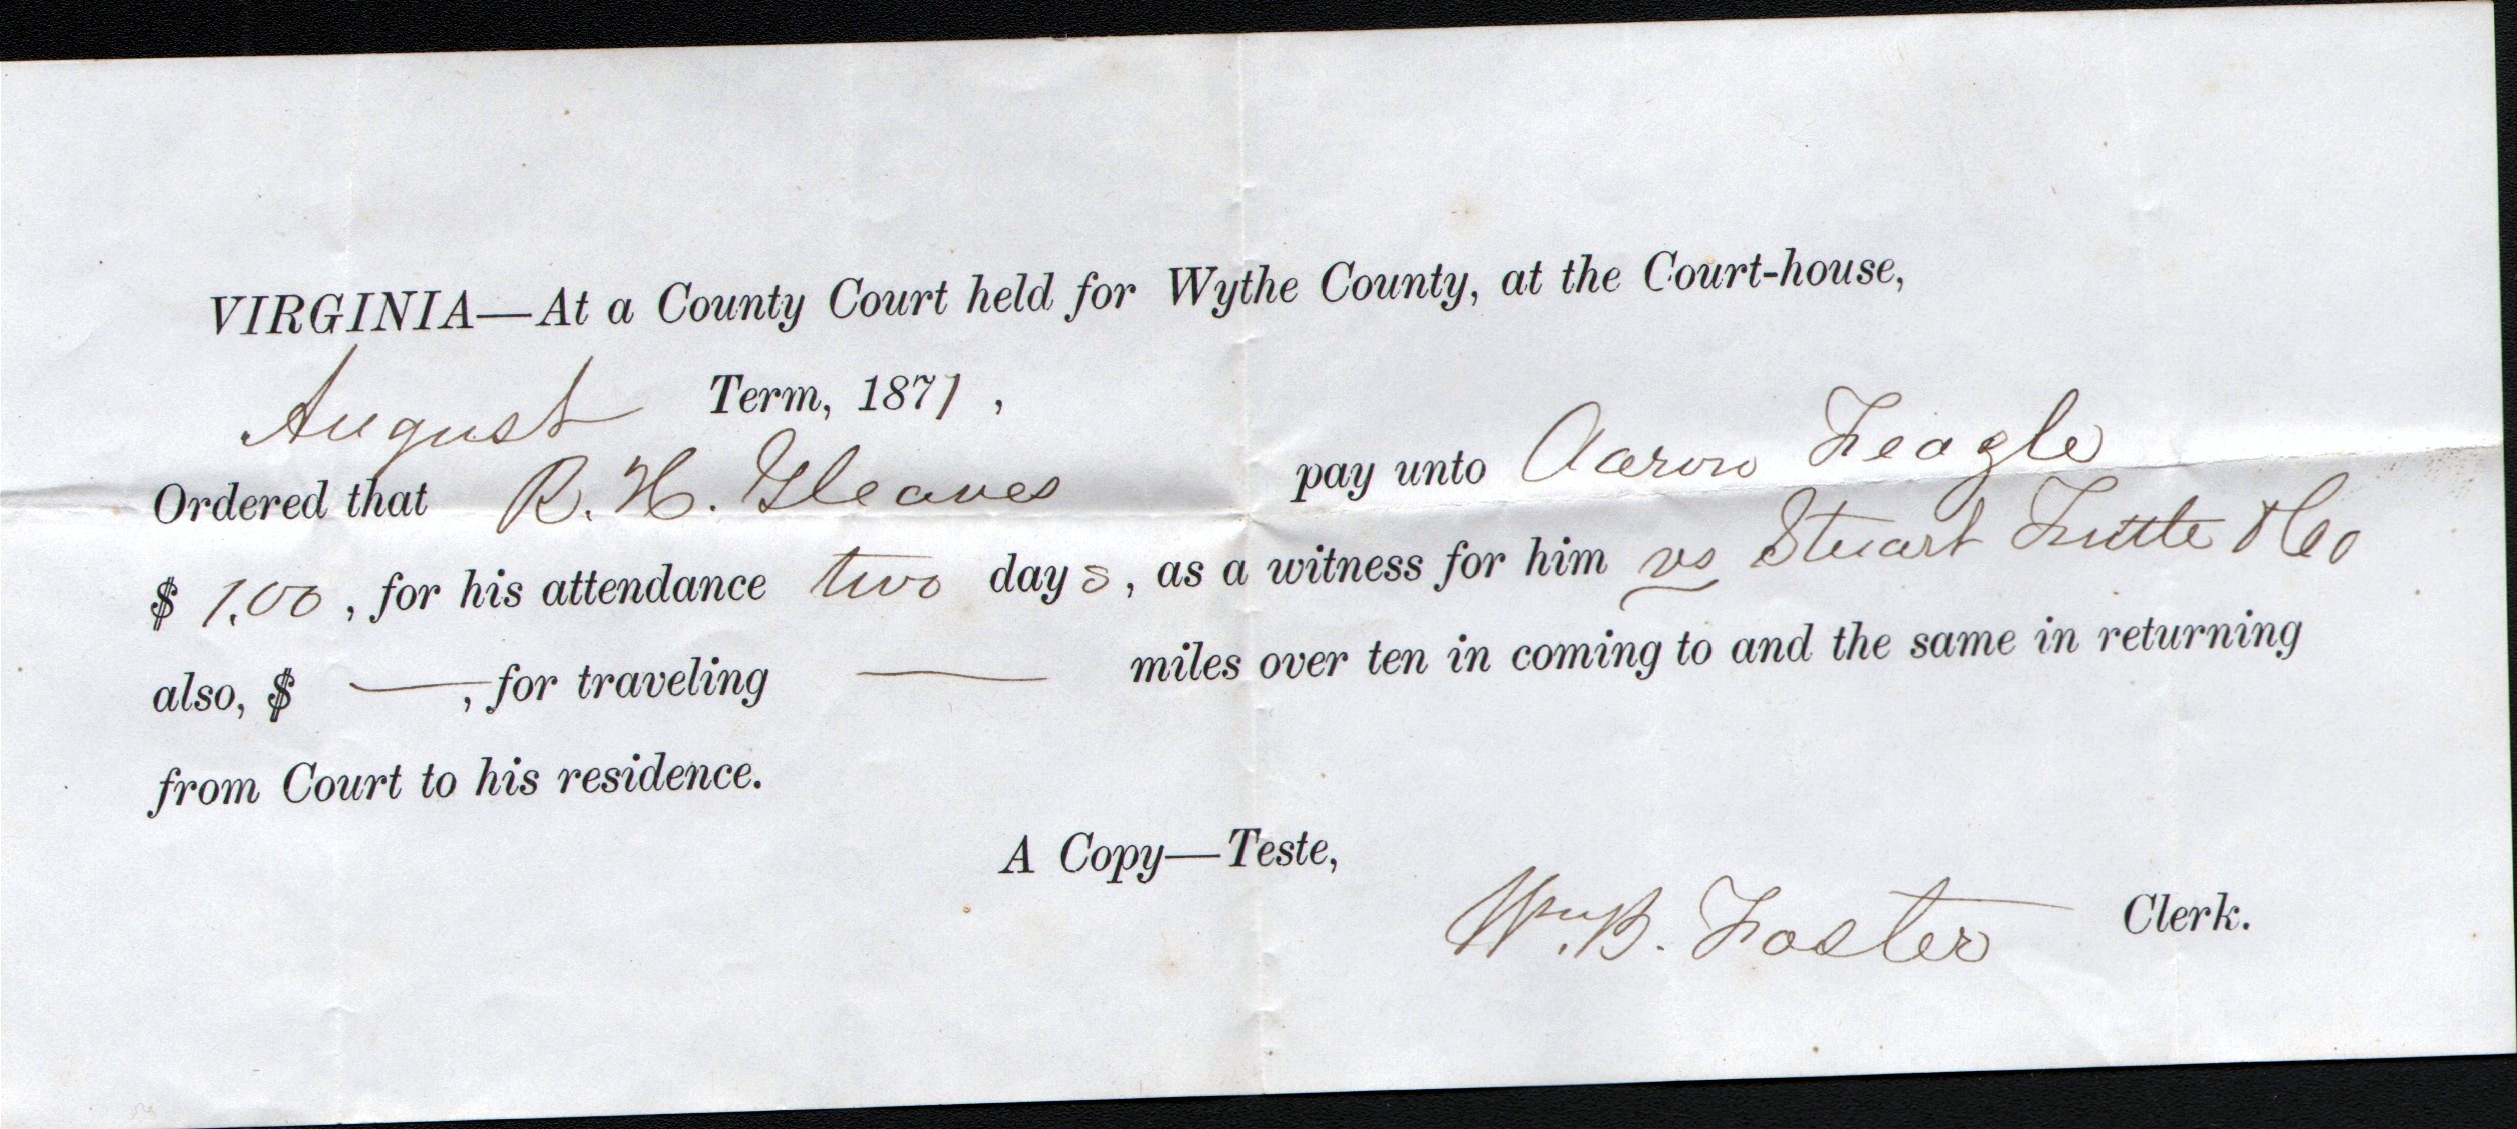 VIRGINIA—At a County Court held for Wythe County, at the Court-house,
August Term, 1871,
Ordered that R. H. Gleaves pay unto Aaron Feagle
$ 1.00, for his attendance two days, as a witness for him vs Stuart &Co
also, $ —, for traveling — miles over ten in coming to and the same in returning
from Court to his residence.
A Copy—Teste,
Wm. B. Foster Clerk.